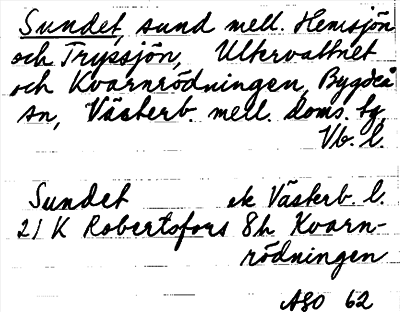 Sundet, sund mell. Hemsjön
och Tryssjön, Ultervattnet
och Kvarnrödningen, Bygdeå
sn, Västerb. mell. doms. tg,
Vb. l.
Sundet ek Västerb. l.
21 K Robertsfors 8h Kvarn-
rödningen
ASO 62